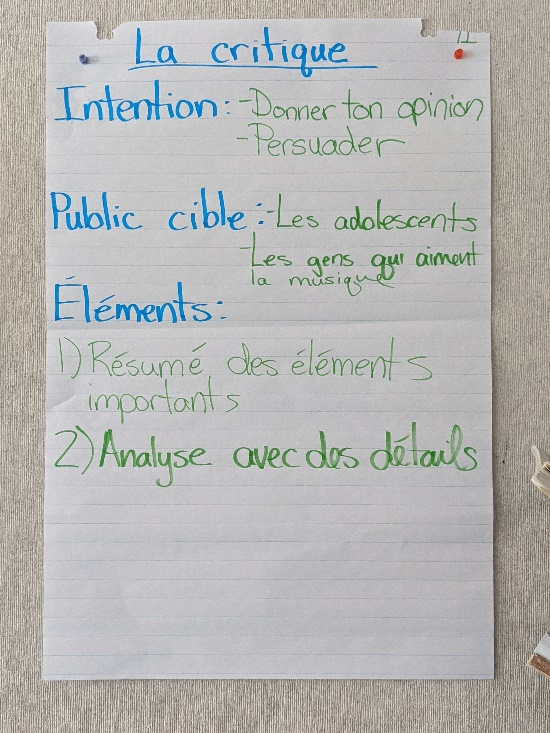 La critique
Intention: -Donner ton opinion
-Persuader
Public cible: -Les adolescents
-Les gens qui aiment
la musique
Éléments:
1) Résumé des éléments
importants
2) Analyse avec des détails